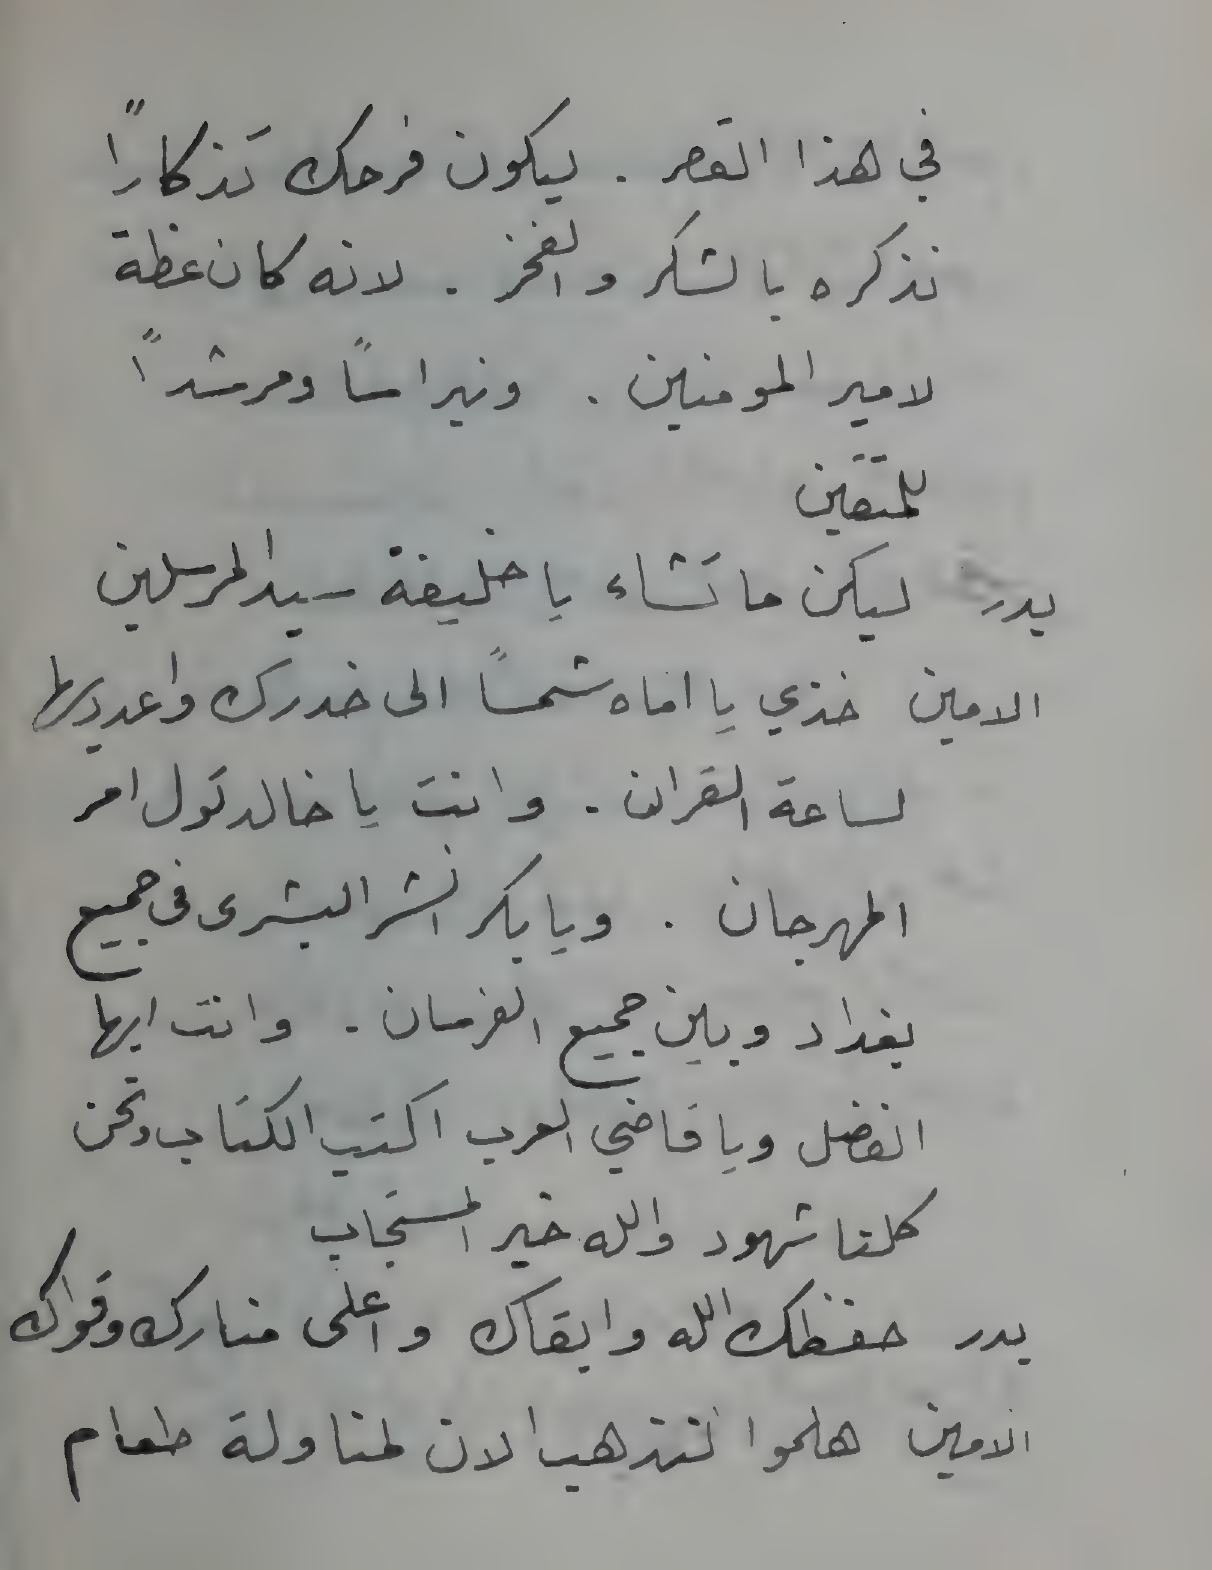 في هذا القصر . ليكون فرحك تذكاراً
نذكره بالشكر والفخر . لانه كان عظة
لامير المومنين . ونبراساً ومرشداً
للمتقين
بدر ليكن ما تشاء يا خليفة سيد المرسلين
الامين خذي يا اماه شمساً الى خدرك واعديها
لساعة القران . وانت يا خالد تول امر
المهرجان . ويا بكر انشر البشرى في جميع
بغداد وبين جميع الفرسان . وانت ايها
الفضل ويا قاضي العرب اكتب الكتاب ونحن
كلنا شهود والله خير المستجاب
بدر حفظك الله وابقاك واعلى منارك وقواك
الامين هلموا لنذهب الان لمناولة طعام